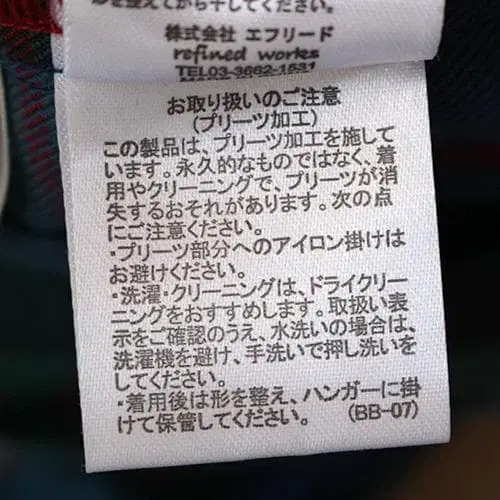 形を整えてから干してください。
株式会社 エフリード
refined works
TEL03-3662-1531
お取り扱いのご注意
(プリーツ加工)
この製品は、プリーツ加工を施して
います。永久的なものではなく、着
用やクリーニングで、プリーツが消
失するおそれがあります。次の点
にご注意ください。
・プリーツ部分へのアイロン掛けは
お避けください。
・洗濯・クリーニングは、ドライクリー
ニングをおすすめします。取扱い表
示をご確認のうえ、水洗いの場合は、
洗濯機を避け、手洗いで押し洗いを
してください。
・着用後は形を整え、ハンガーに掛
けて保管してください。 (BB-07)